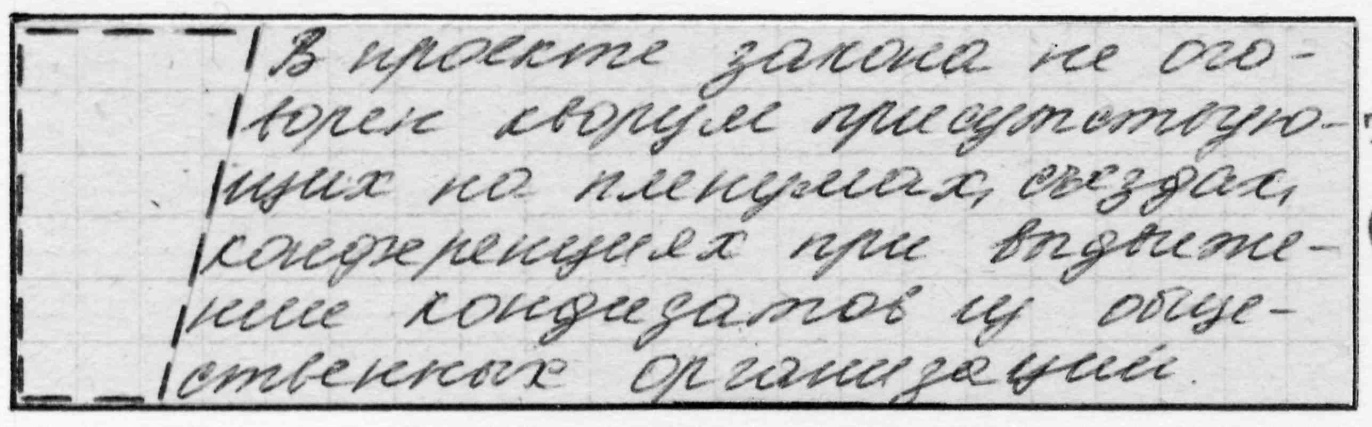 В проекте закона не ого-
ворен кворум присутствую-
щих на пленумах, съездах,
конференциях при выдвиже-
нии кондидатов из обще-
ственных организаций.